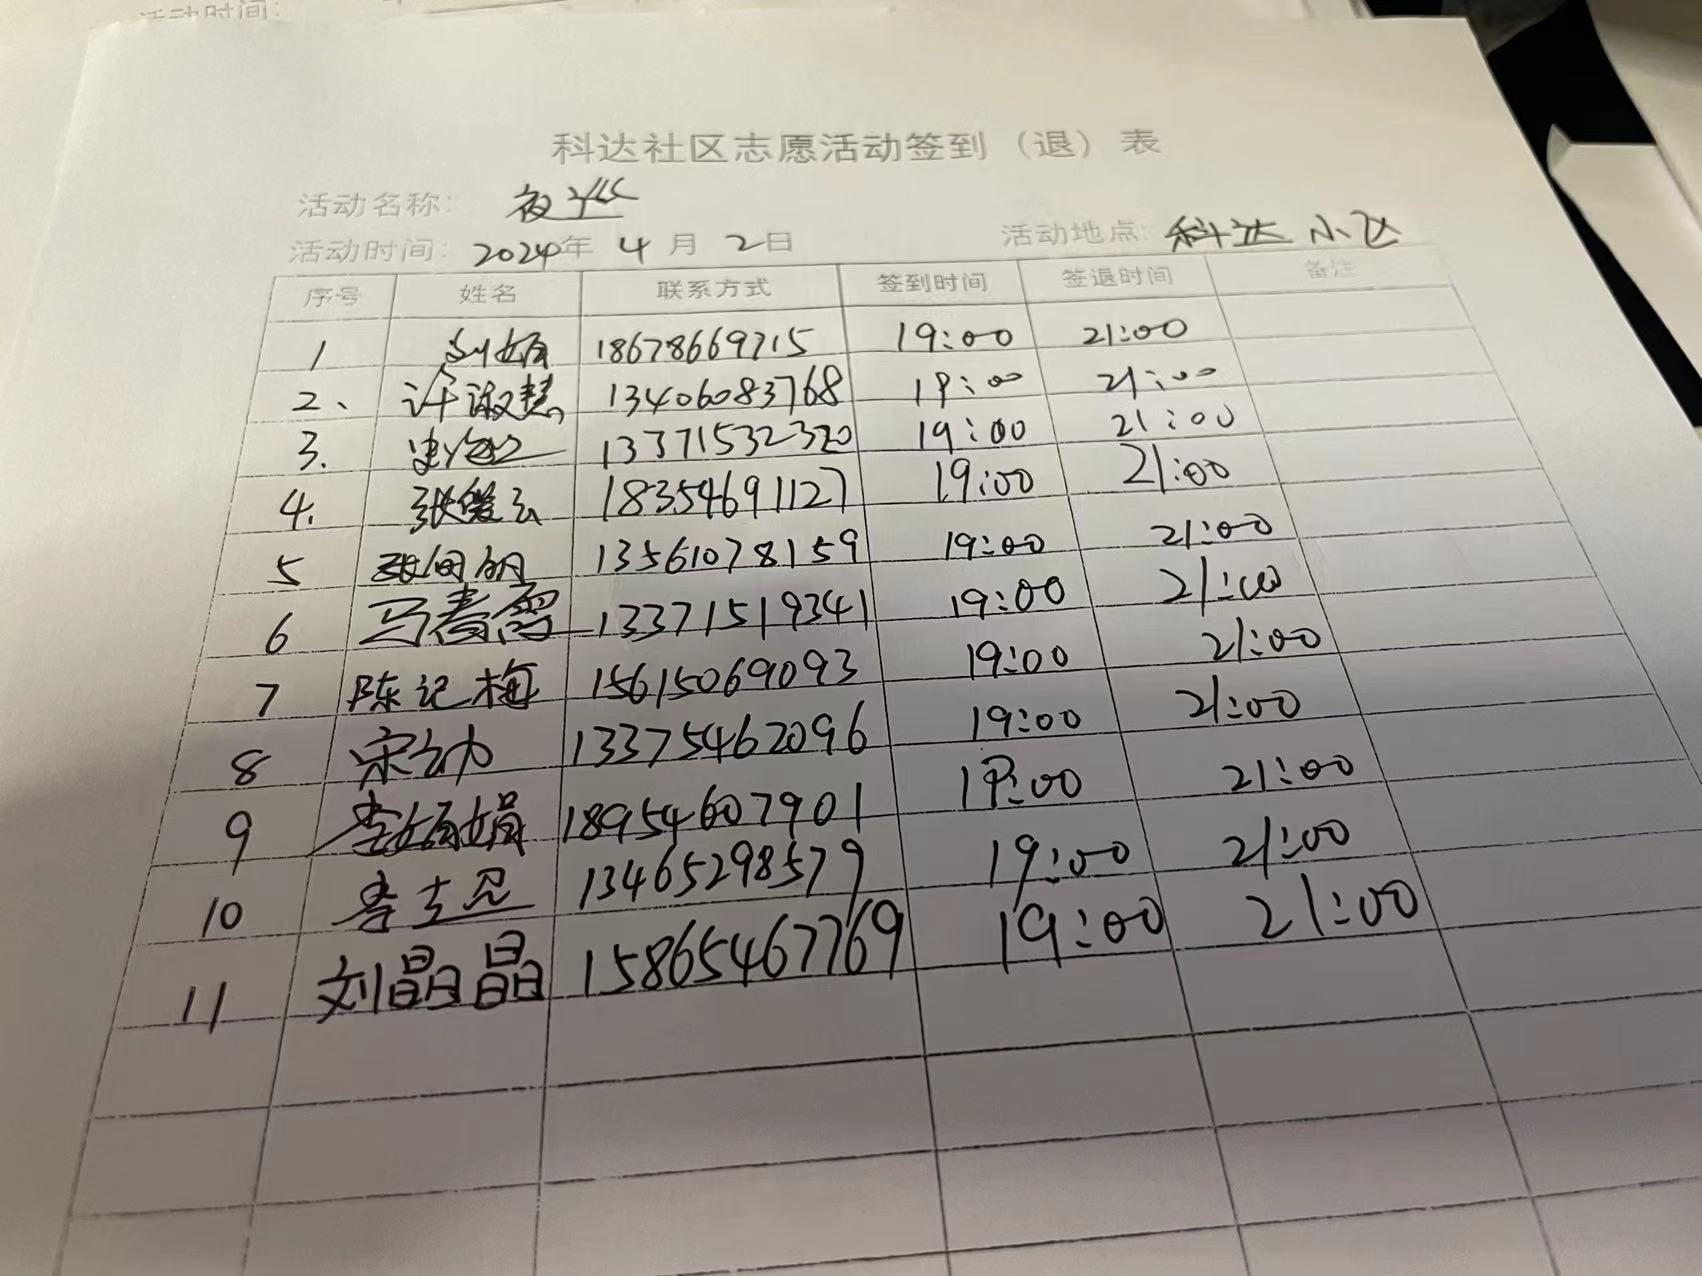 活动时间:
科达社区志愿活动签到（退）表
活动名称: 夜巡
活动时间: 2024年 4 月 2日 活动地点: 科达小区
序号 姓名 联系方式 签到时间 签退时间 备注
1 刘娟 18678669715 19:00 21:00
2、 许淑慧 13406083768 19:00 21:00
3. 13371532320 19:00 21:00
4. 张俊云 18354691127 19:00 21:00
5 张向明 13561078159 19:00 21:00
6 马春霞 13371519341 19:00 21:00
7 陈记梅 15615069093 19:00 21:00
8 宋幼 13375462096 19:00 21:00
9 李娟娟 18954607901 19:00 21:00
10 李 13465298579 19:00 21:00
11 刘晶晶 15865467769 19:00 21:00